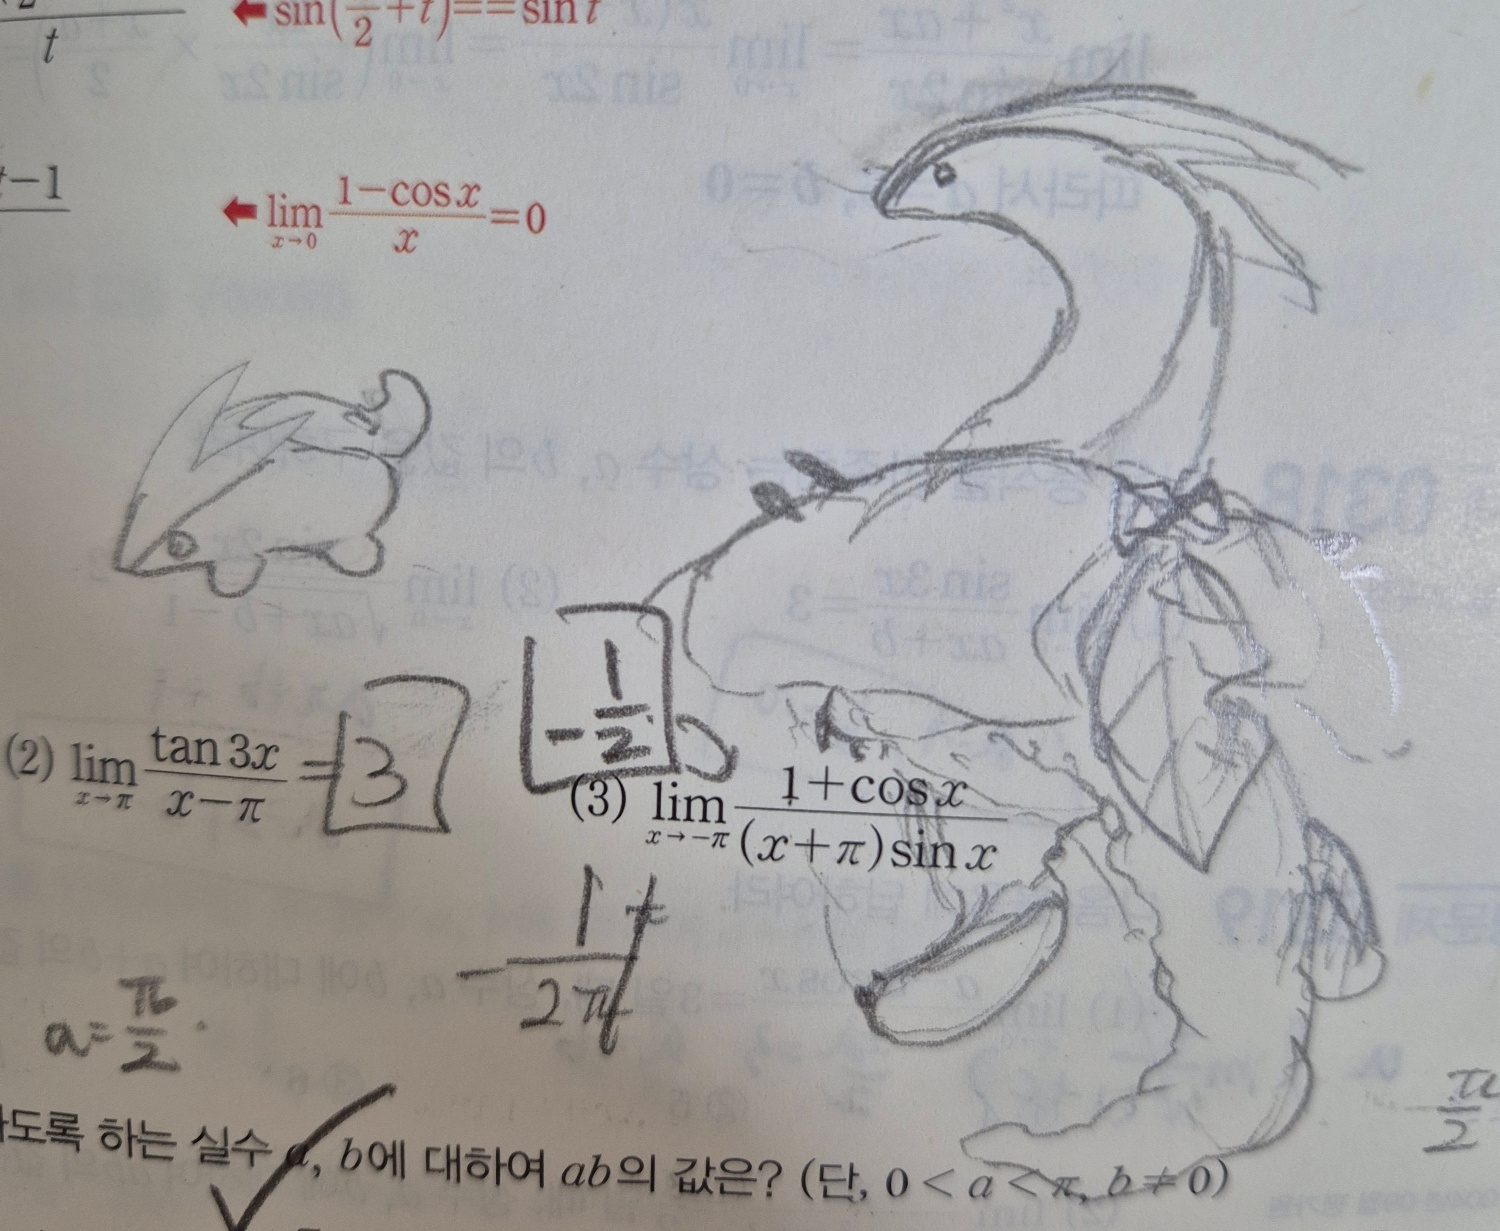 t
← sin(π/2+t)==sin t
t-1
← lim x→0 (1-cos x)/x=0
(2) lim x→π (tan 3x)/(x-π) = 3
-1/2
(3) lim x→-π (1+cos x)/((x+π)sin x)
a=π/2
π/2
도록 하는 실수 a, b에 대하여 ab의 값은? (단, 0<a<π, b≠0)